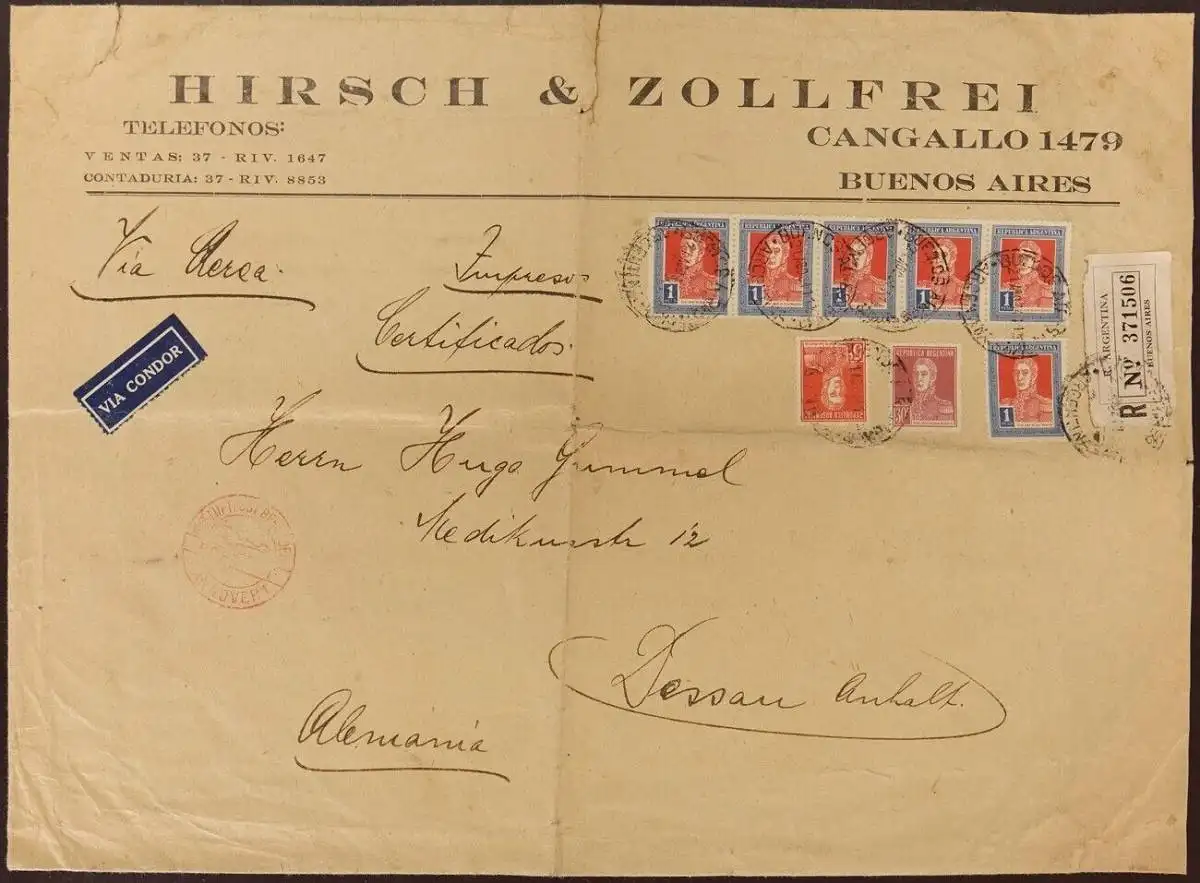 HIRSCH & ZOLLFREI
TELEFONOS:
VENTAS: 37 - RIV. 1647
CONTADURIA: 37 - RIV. 8853
CANGALLO 1479
BUENOS AIRES
Via Aerea.
Impresos
Certificados.
VIA CONDOR
REPUBLICA ARGENTINA
1
REPUBLICA ARGENTINA
1
REPUBLICA ARGENTINA
1
REPUBLICA ARGENTINA
1
REPUBLICA ARGENTINA
1
REPUBLICA ARGENTINA
30c
REPUBLICA ARGENTINA
1
R. ARGENTINA
R Nº 371506
BUENOS AIRES
Herrn Hugo Gummel
Medikusstr 12
Dessau Anhalt.
Alemania